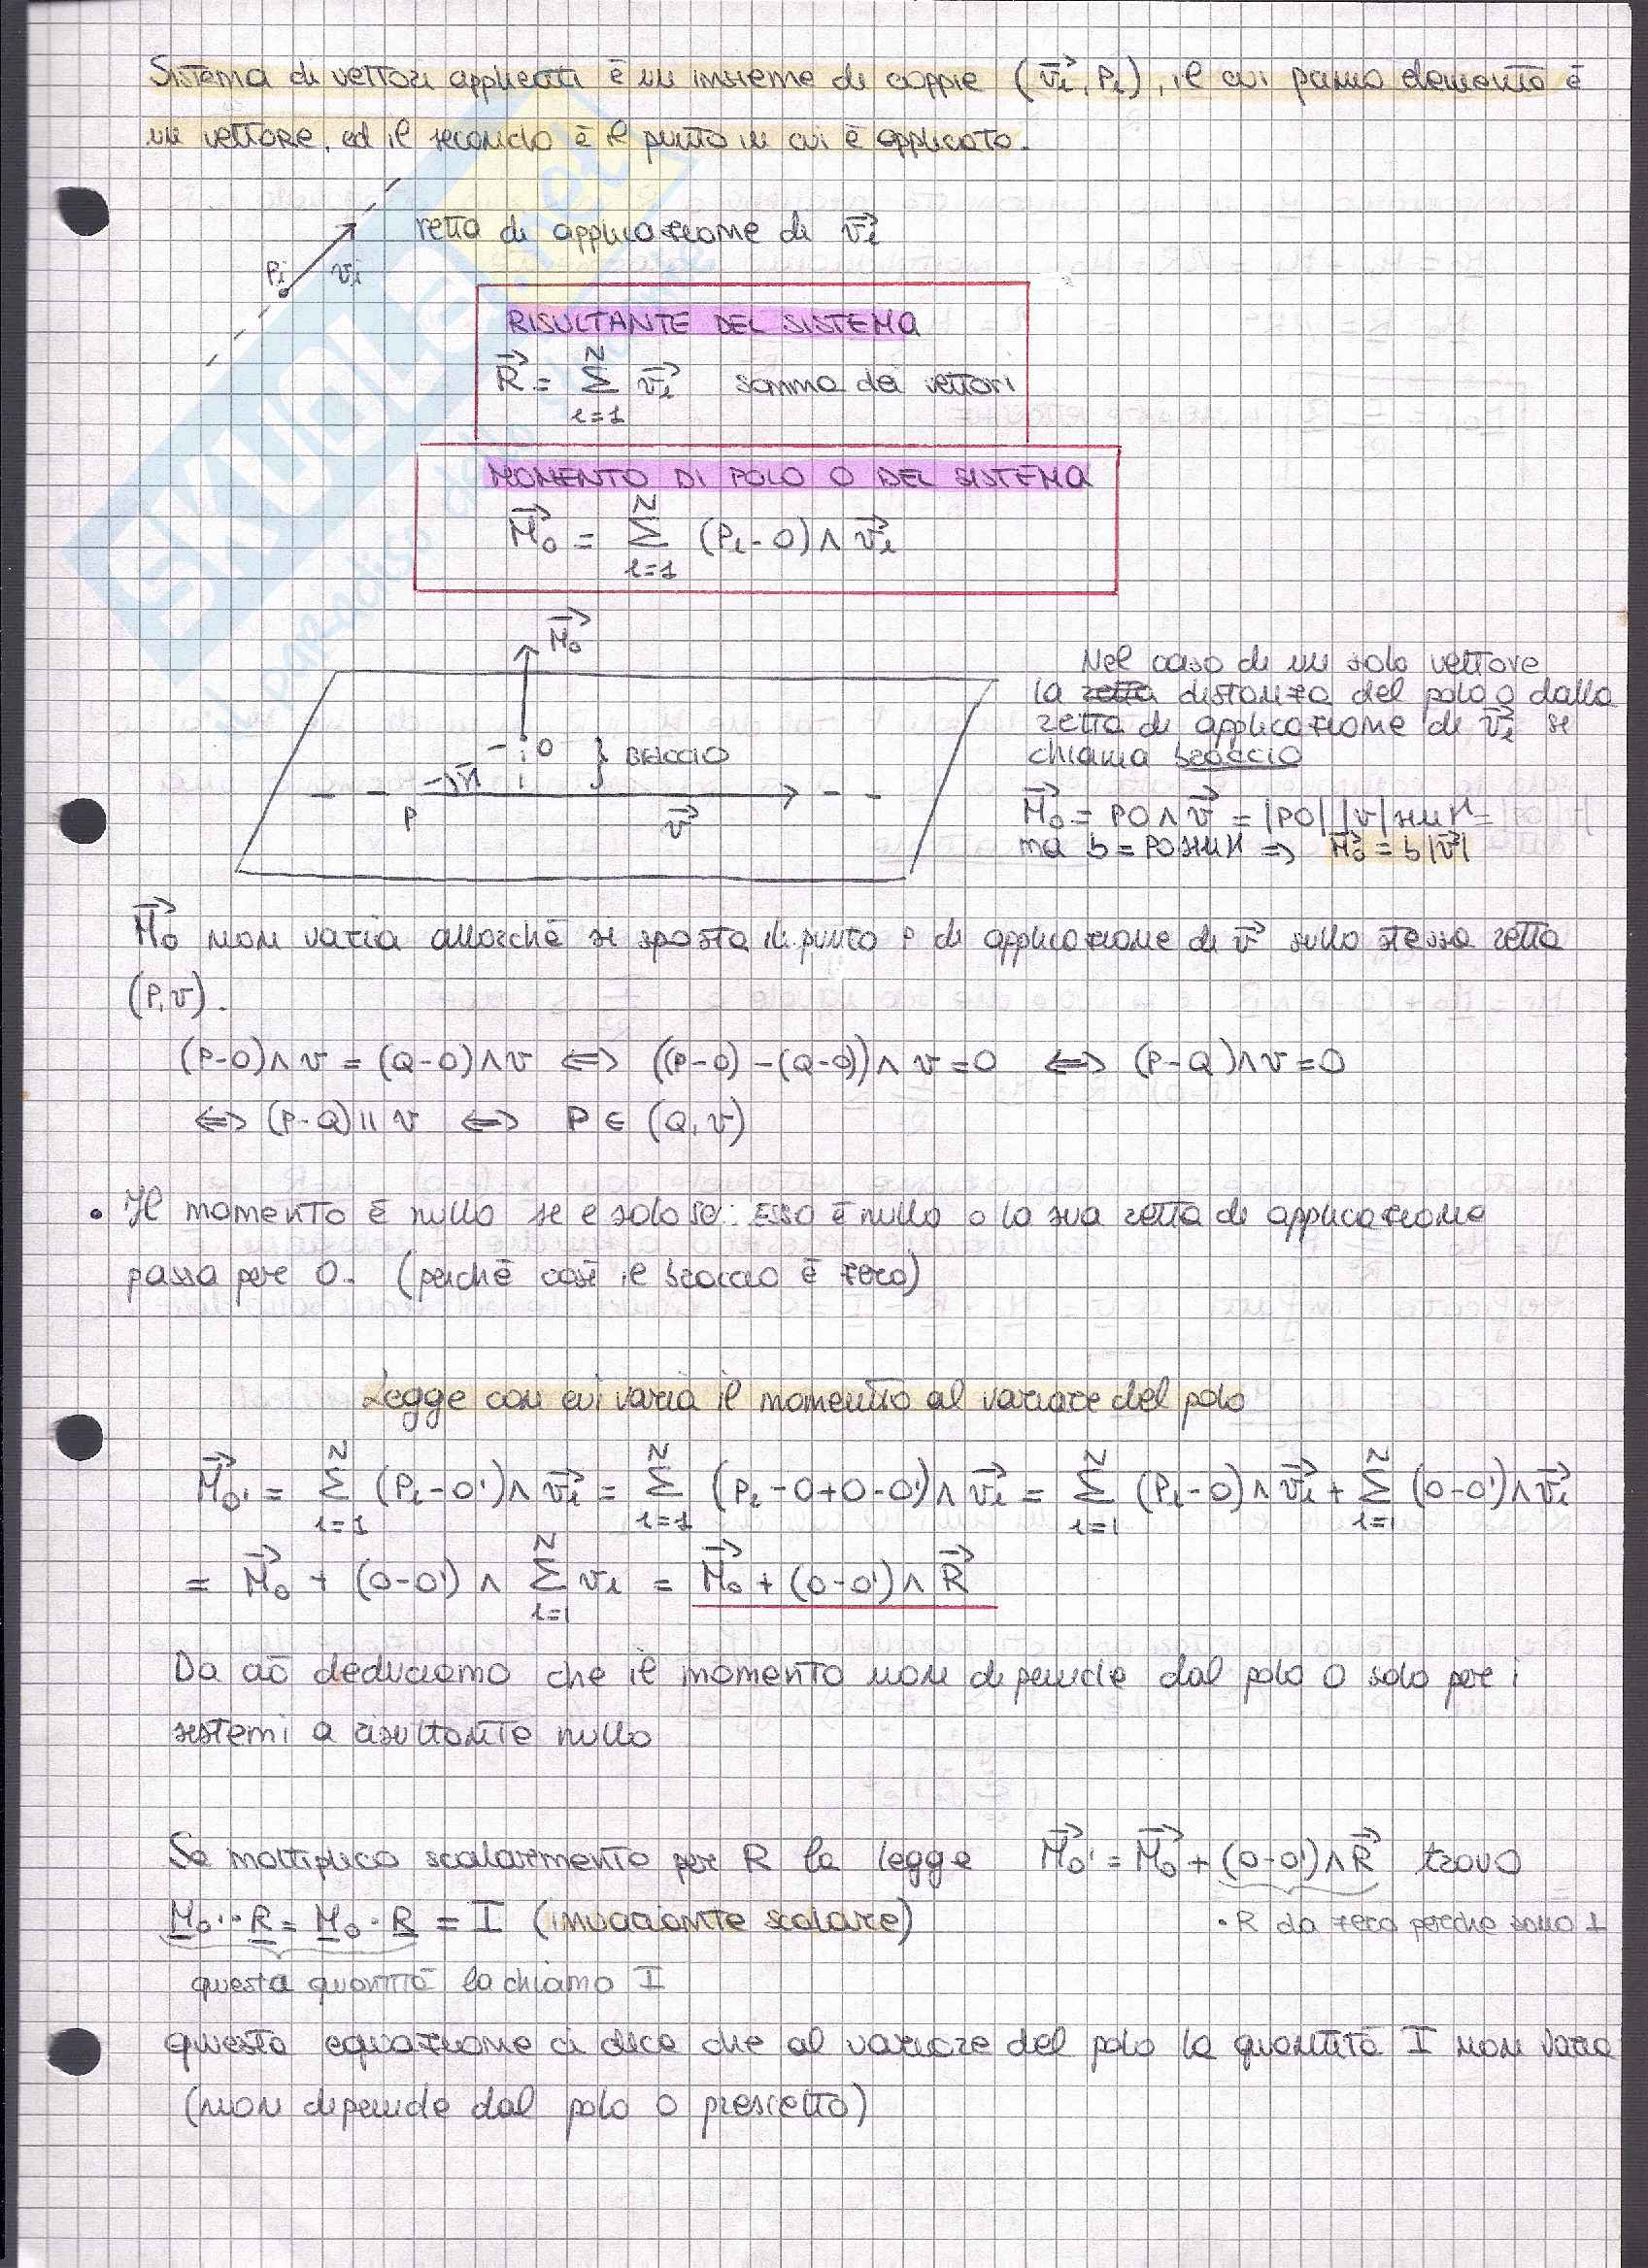 Sistema di vettori applicati è un insieme di coppie (v⃗i, Pi), il cui primo elemento è
un vettore, ed il secondo è il punto in cui è applicato.
retta di applicazione di v⃗i
Pi
vi
RISULTANTE DEL SISTEMA
R⃗ = Σ_{i=1}^{N} v⃗i somma dei vettori
MOMENTO DI POLO O DEL SISTEMA
M⃗o = Σ_{i=1}^{N} (Pi - O) ∧ v⃗i
M⃗o
O
BRACCIO
P
v⃗
Nel caso di un solo vettore
la distanza del polo o dalla
retta di applicazione di v⃗i se
chiama braccio
M⃗o = PO ∧ v⃗ = |PO| |v| sin α =
ma b = PO sin α ⇒ M⃗o = b|v⃗|
M⃗o non varia allorchè si sposta il punto P di applicazione di v⃗ sulla stessa retta
(P, v).
(P-O)∧v = (Q-O)∧v ⇔ ((P-O) - (Q-O))∧v = 0 ⇔ (P-Q)∧v = 0
⇔ (P-Q) || v ⇔ P ∈ (Q, v)
• Il momento è nullo se e solo se: Esso è nullo o la sua retta di applicazione
passa per O. (perchè così il braccio è zero)
Legge con cui varia il momento al variare del polo
M⃗o' = Σ_{i=1}^{N} (Pi - O') ∧ v⃗i = Σ_{i=1}^{N} (Pi - O + O - O') ∧ v⃗i = Σ_{i=1}^{N} (Pi - O) ∧ v⃗i + Σ_{i=1}^{N} (O - O') ∧ v⃗i
= M⃗o + (O - O') ∧ Σ_{i=1}^{N} vi = M⃗o + (O - O') ∧ R⃗
Da ciò deduciamo che il momento non dipende dal polo O solo per i
sistemi a risultante nullo
Se moltiplico scalarmente per R la legge M⃗o' = M⃗o + (O - O') ∧ R⃗ trovo
Mo' · R = Mo · R = I (invariante scalare)
• R da zero perchè sono ⊥
questa quantità la chiamo I
questa equazione ci dice che al variare del polo la quantità I non varia
(non dipende dal polo o prescelto)
SKUOLA.net
il paradiso dello studente